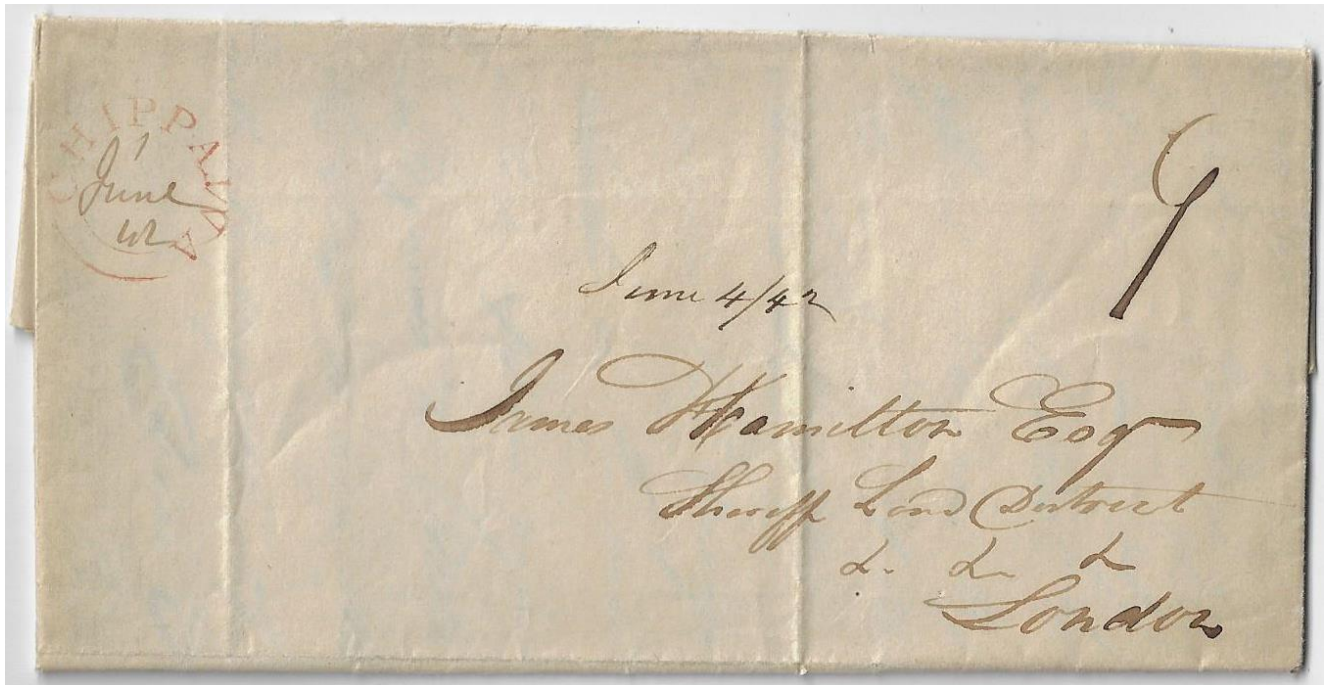 CHIPPAWA
1
June
42
9
June 4/42
James Hamilton Esq
Sheriff Lond District
&. &. &
London